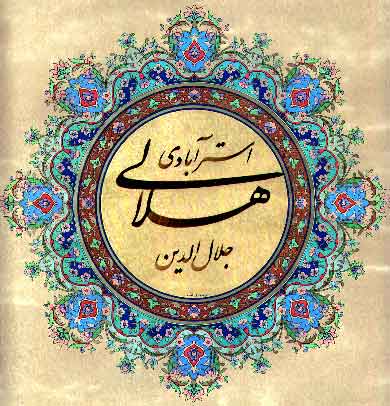 استرآبادی
هلالی
جلال الدین